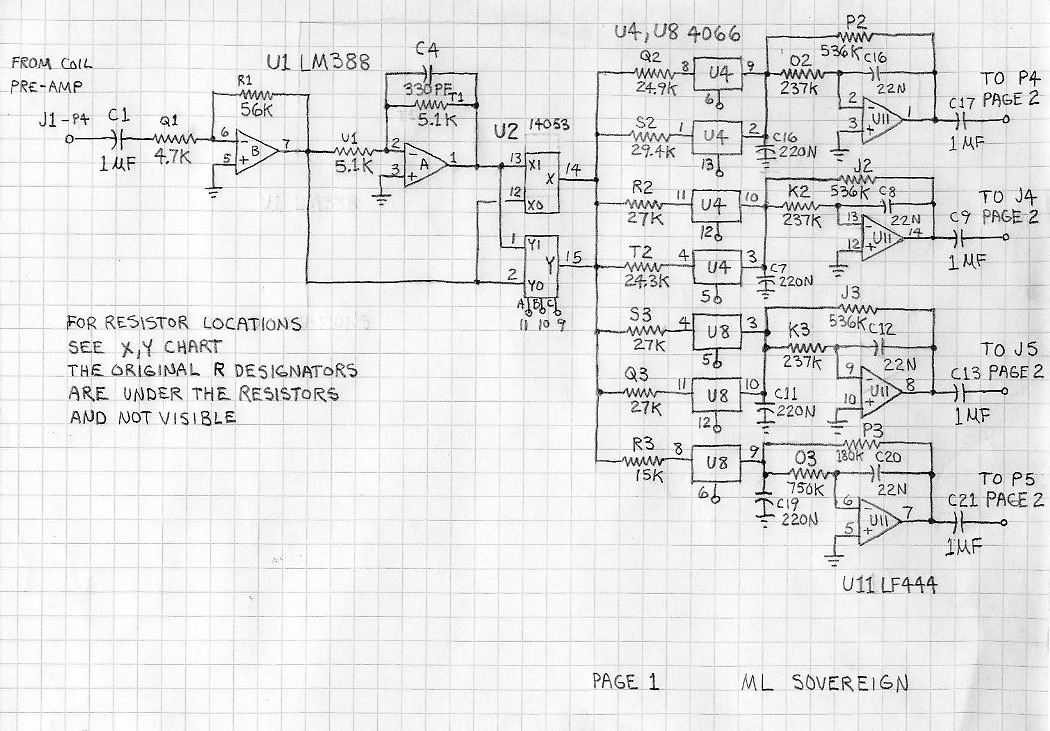 FROM COIL
PRE-AMP
J1-P4
C1
1MF
Q1
4.7K
U1 LM388
R1
56K
6
5
-
+
B
7
C4
330PF
T1
5.1K
U1
5.1K
2
3
-
+
A
1
U2 14053
13 X1
X
14
12
X0
1 Y1
Y
15
2 Y0
A B C
11 10 9
U4, U8 4066
Q2
24.9K
8
U4
9
6
S2
29.4K
1
U4
2
13
R2
27K
11
U4
10
12
T2
24.3K
4
U4
3
5
S3
27K
4
U8
3
5
Q3
27K
11
U8
10
12
R3
15K
8
U8
9
6
P2
536K
O2
237K
C16
22N
C16
220N
2
3
-
+
U11
1
C17
1MF
TO P4
PAGE 2
J2
536K
K2
237K
C8
22N
C7
220N
13
12
-
+
U11
14
C9
1MF
TO J4
PAGE 2
J3
536K
K3
237K
C12
22N
C11
220N
9
10
-
+
U11
8
C13
1MF
TO J5
PAGE 2
P3
180K
O3
750K
C20
22N
C19
220N
6
5
-
+
U11
7
C21
1MF
TO P5
PAGE 2
U11 LF444
FOR RESISTOR LOCATIONS
SEE X,Y CHART
THE ORIGINAL R DESIGNATORS
ARE UNDER THE RESISTORS
AND NOT VISIBLE
PAGE 1
ML SOVEREIGN